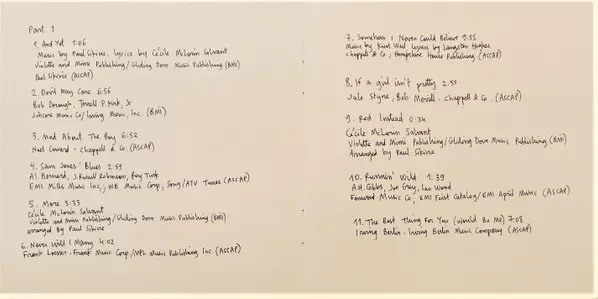 Part 1
1. And Yet 1:06
Music by Paul Sikivie, lyrics by Cécile McLorin Salvant
Violette and Mimi Publishing/Gliding Dove Music Publishing (BMI)
Paul Sikivie (ASCAP)
2. Devil May Care 6:56
Bob Dorough, Terrell P. Kirk, Jr
Sincere Music Co/Irving Music, Inc. (BMI)
3. Mad About The Boy 6:32
Noel Coward - Chappell & Co. (ASCAP)
4. Sam Jones' Blues 2:39
Al Bernard, J. Russell Robinson, Roy Turk
EMI Mills Music Inc, WB Music Corp, Sony/ATV Tunes (ASCAP)
5. More 3:33
Cécile McLorin Salvant
Violette and Mimi Publishing/Gliding Dove Music Publishing (BMI)
arranged By Paul Sikivie
6. Never Will I Marry 4:02
Frank Loesser - Frank Music Corp/MPL Music Publishing Inc. (ASCAP)
7. Somehow I Never Could Believe 9:35
Music by Kurt Weil Lyrics by Langston Hughes
Chappell & Co, Hampshire House Publishing (ASCAP)
8. If a girl isn't pretty 2:55
Jule Styne, Bob Merrill - Chappell & Co. (ASCAP)
9. Red Instead 0:34
Cécile McLorin Salvant
Violette and Mimi Publishing/Gliding Dove Music Publishing (BMI)
Arranged by Paul Sikivie
10. Runnin' Wild 1:39
A.H. Gibbs, Joe Grey, Leo Wood
Music Co, EMI Feist Catalog/EMI April Music (ASCAP)
11. The Best Thing For You (Would Be Me) 7:03
Irving Berlin - Irving Berlin Music Company (ASCAP)